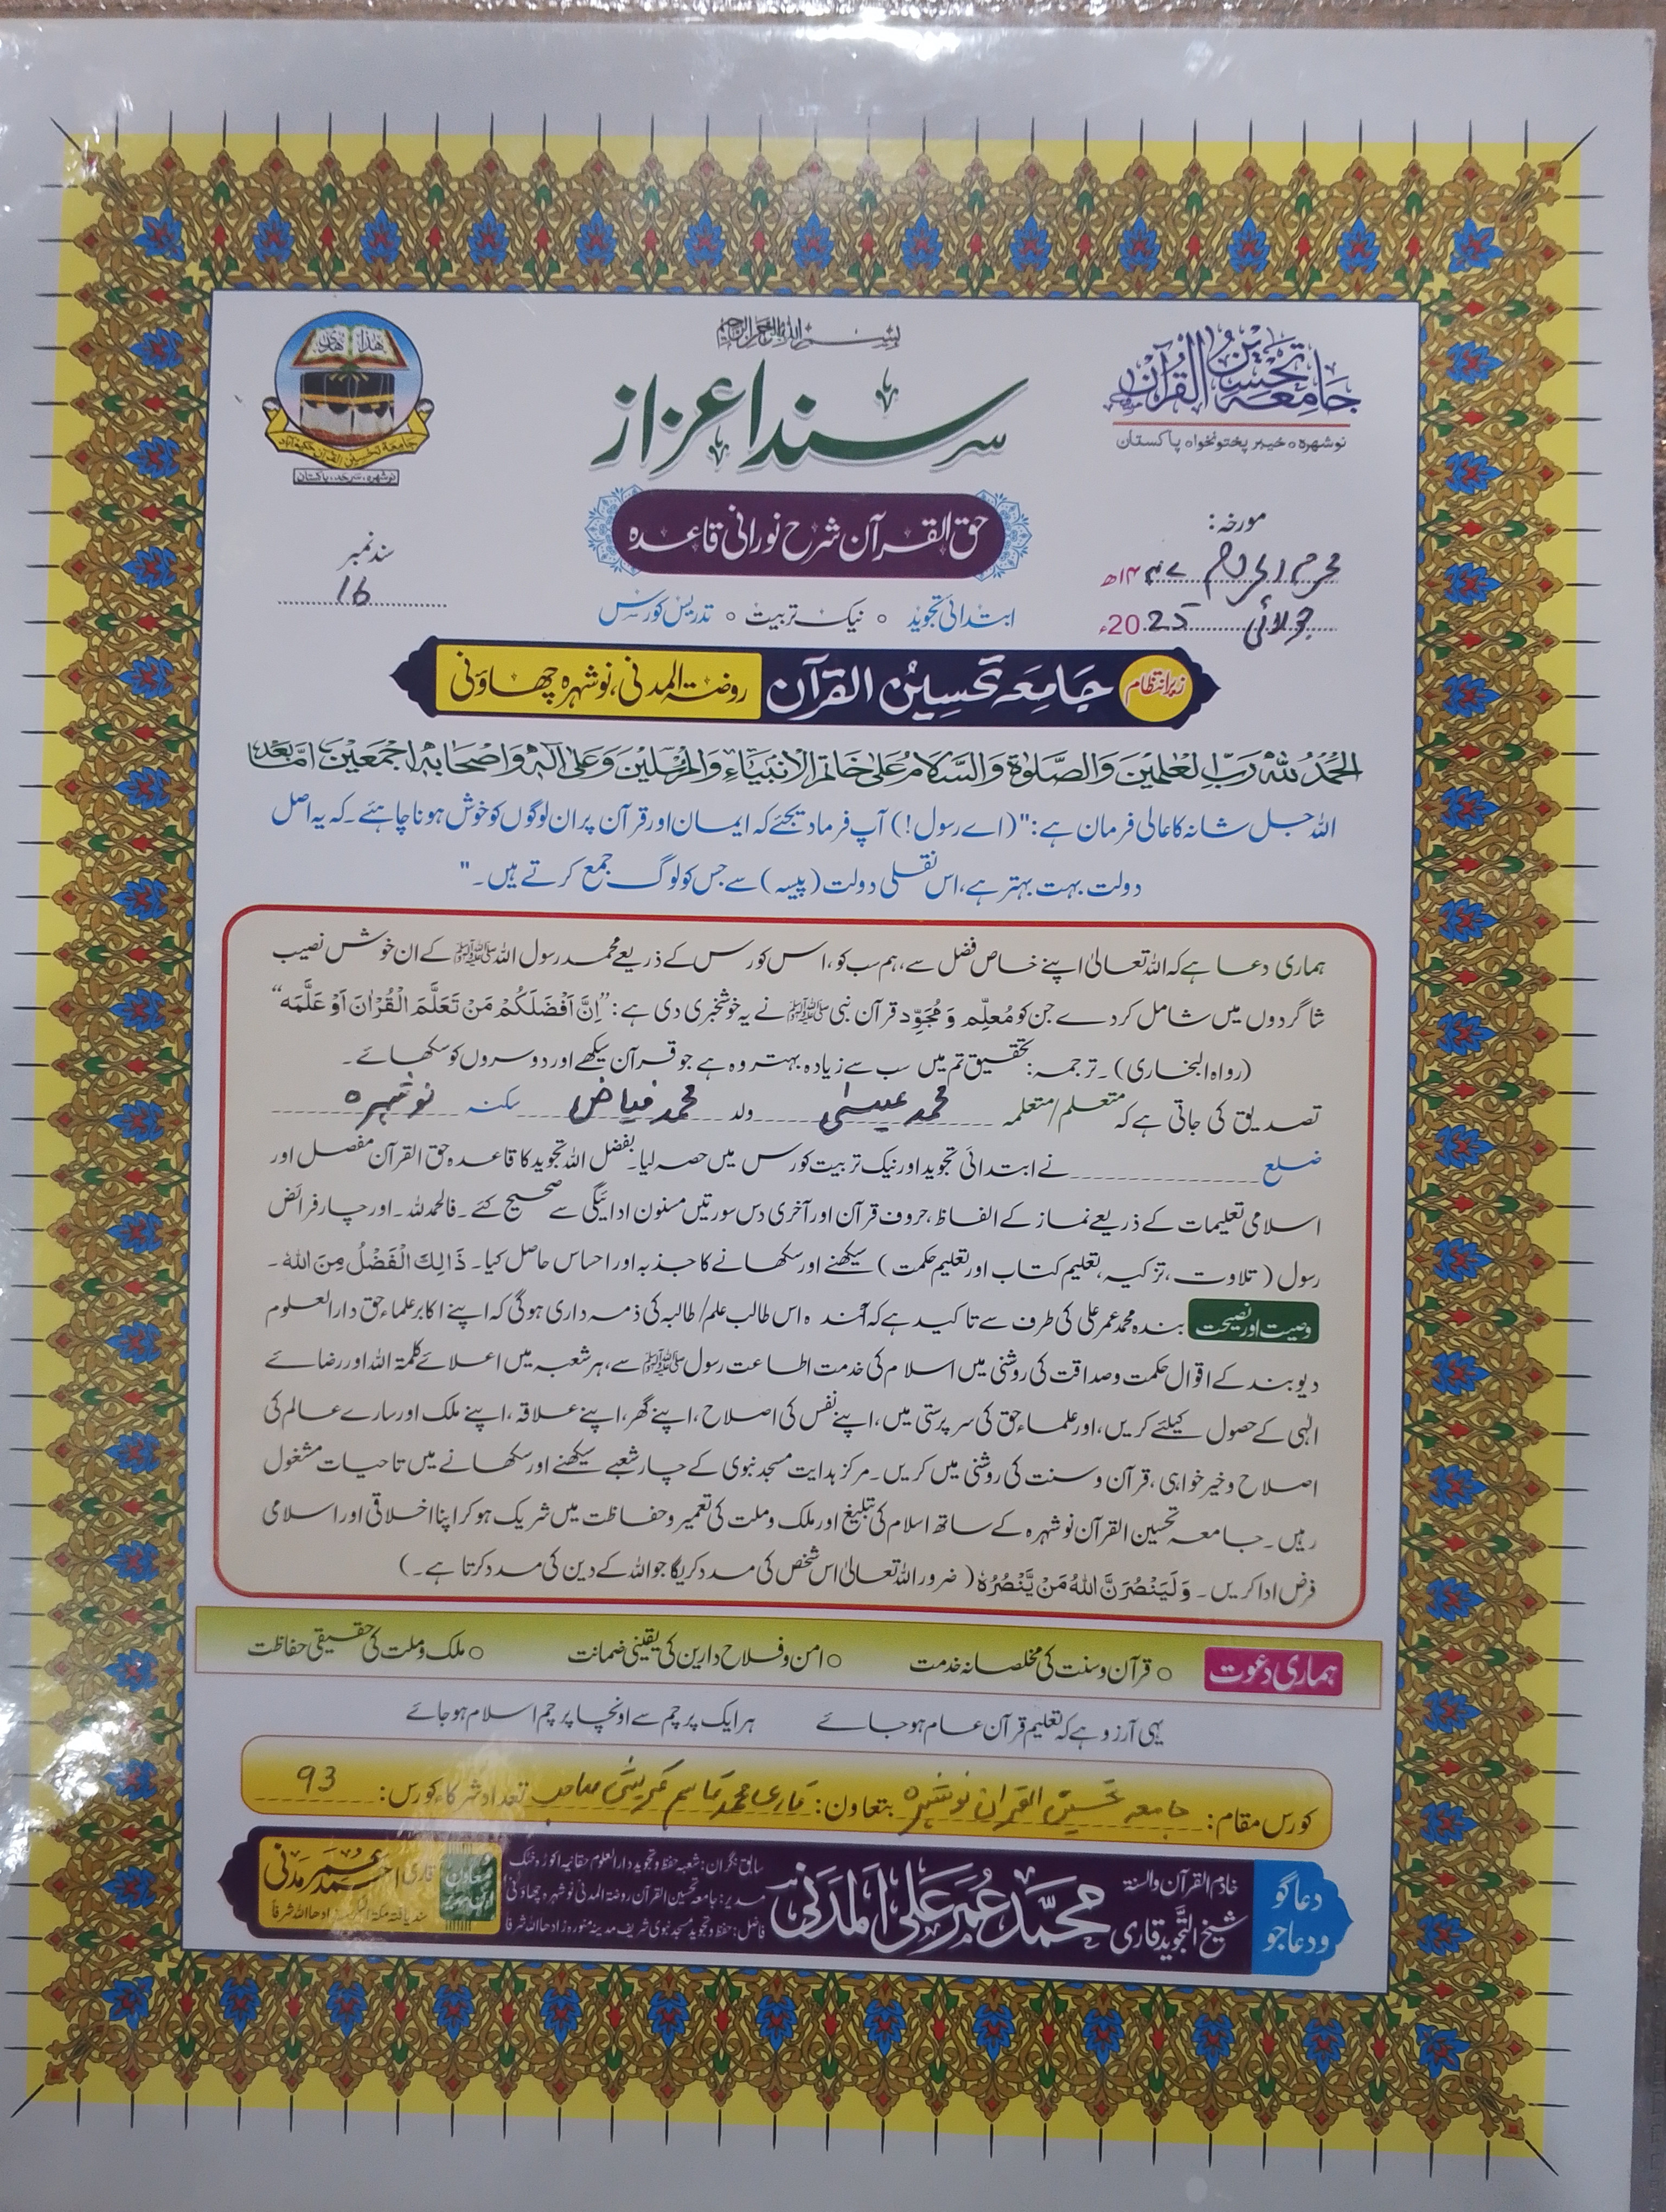 بسم اللہ الرحمن الرحیم
جامعہ تحسین القرآن
نوشہرہ ○ خیبر پختونخواہ پاکستان
سند اعزاز
جامعہ تحسین القرآن حکیم آباد
نوشہرہ، سرحد، پاکستان
حق القرآن شرح نورانی قاعدہ
مورخہ:
محرم الحرام ۱۴۴۷ھ
جولائی 2025ء
سند نمبر
16
ابتدائی تجوید ○ نیک تربیت ○ تدریس کورس
زیر انتظام جَامِعَہ تَحسِینُ القُرآن روضۃ المدنی، نوشہرہ چھاؤنی
الحَمْدُ لِلّٰہ رَبِّ العٰلمِینَ وَالصَّلوٰۃ وَالسَّلَامُ عَلیٰ خَاتم الانبیَاءِ وَالمُرْسَلِین وَعَلیٰ آلہٖ وَاَصْحَابہٖ اَجْمَعِین امَّا بَعْد
اللہ جل شانہ کا عالی فرمان ہے: "(اے رسول!) آپ فرما دیجئے کہ ایمان اور قرآن پر ان لوگوں کو خوش ہونا چاہئے۔ کہ یہ اصل
دولت بہت بہتر ہے، اس نقلی دولت (پیسہ) سے جس کو لوگ جمع کرتے ہیں۔"
ہماری دعا ہے کہ اللہ تعالیٰ اپنے خاص فضل سے، ہم سب کو، اس کورس کے ذریعے محمد رسول اللہ ﷺ کے ان خوش نصیب
شاگردوں میں شامل کر دے جن کو مُعلِّم وَ مُجَوِّد قرآن نبی ﷺ نے یہ خوشخبری دی ہے: "اِنَّ اَفْضَلَکُمْ مَنْ تَعَلَّمَ الْقُرْاٰنَ اَوْ عَلَّمَہ"
(رواہ البخاری)۔ ترجمہ: تحقیق تم میں سب سے زیادہ بہتر وہ ہے جو قرآن سیکھے اور دوسروں کو سکھائے۔
تصدیق کی جاتی ہے کہ متعلم/متعلمہ محمد عیسیٰ ولد محمد فیاض سکنہ نوشہرہ
ضلع نے ابتدائی تجوید اور نیک تربیت کورس میں حصہ لیا۔ بفضل اللہ تجوید کا قاعدہ حق القرآن مفصل اور
اسلامی تعلیمات کے ذریعے نماز کے الفاظ، حروف قرآن اور آخری دس سورتیں مسنون ادائیگی سے صحیح کئے۔ فالحمدللہ۔ اور چار فرائض
رسول (تلاوت، تزکیہ، تعلیم کتاب اور تعلیم حکمت) سیکھنے اور سکھانے کا جذبہ اور احساس حاصل کیا۔ ذَالِكَ الْفَضْلُ مِنَ اللهِ۔
وصیت اور نصیحت بندہ محمد عمر علی کی طرف سے تاکید ہے کہ آئندہ اس طالب علم/طالبہ کی ذمہ داری ہوگی کہ اپنے اکابر علماء حق دارالعلوم
دیوبند کے اقوال حکمت و صداقت کی روشنی میں اسلام کی خدمت اطاعت رسول ﷺ سے، ہر شعبہ میں اعلائے کلمۃ اللہ اور رضائے
الٰہی کے حصول کیلئے کریں، اور علماء حق کی سرپرستی میں، اپنے نفس کی اصلاح، اپنے گھر، اپنے علاقہ، اپنے ملک اور سارے عالم کی
اصلاح و خیر خواہی، قرآن و سنت کی روشنی میں کریں۔ مرکز ہدایت مسجد نبوی کے چار شعبے سیکھنے اور سکھانے میں تا حیات مشغول
رہیں۔ جامعہ تحسین القرآن نوشہرہ کے ساتھ اسلام کی تبلیغ اور ملک و ملت کی تعمیر و حفاظت میں شریک ہو کر اپنا اخلاقی اور اسلامی
فرض ادا کریں۔ وَلَيَنْصُرَنَّ اللهُ مَنْ يَّنْصُرُهٗ (ضرور اللہ تعالیٰ اس شخص کی مدد کریگا جو اللہ کے دین کی مدد کرتا ہے۔)
ہماری دعوت ○ قرآن و سنت کی مخلصانہ خدمت ○ امن و فلاح دارین کی یقینی ضمانت ○ ملک و ملت کی حقیقی حفاظت
یہی آرزو ہے کہ تعلیم قرآن عام ہو جائے ہر ایک پرچم سے اونچا پرچم اسلام ہو جائے
کورس مقام: جامعہ تحسین القرآن نوشہرہ بتعاون: قاری محمد قاسم قریشی صاحب تعداد شرکاء کورس: 93
دعاگو ودعاجو
خادم القرآن والسنۃ
شیخ التجوید قاری محمد عمر علی المدنی
سابق نگران: شعبہ حفظ و تجوید دارالعلوم حقانیہ اکوڑہ خٹک
مدیر: جامعہ تحسین القرآن روضۃ المدنی نوشہرہ چھاؤنی
فاضل: حفظ و تجوید مسجد نبوی شریف مدینہ منورہ زادھا اللہ شرفا
معاون
قاری احمد عمر مدنی